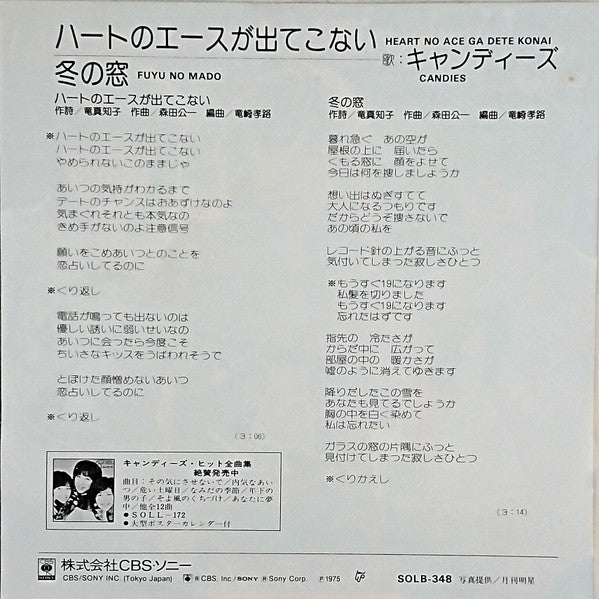 ハートのエースが出てこない HEART NO ACE GA DETE KONAI
冬の窓 FUYU NO MADO
歌:キャンディーズ
CANDIES
ハートのエースが出てこない
作詩/竜真知子 作曲/森田公一 編曲/竜崎孝路
※ハートのエースが出てこない
ハートのエースが出てこない
やめられないこのままじゃ
あいつの気持がわかるまで
デートのチャンスはおあずけなのよ
気まぐれそれとも本気なの
きめ手がないのよ注意信号
願いをこめあいつとのことを
恋占いしてるのに
※くり返し
電話が鳴っても出ないのは
優しい誘いに弱いせいなの
あいつに会ったら今度こそ
ちいさなキッスをうばわれそうで
とぼけた顔憎めないあいつ
恋占いしてるのに
※くり返し
(3:06)
キャンディーズ・ヒット全曲集
絶賛発売中
曲目:その気にさせないで/内気なあい
つ/危い土曜日/なみだの季節/年下の
男の子/そよ風のくちづけ/あなたに夢
中/他全12曲
●SOLL-172
●大型ポスターカレンダー付
冬の窓
作詩/竜真知子 作曲/森田公一 編曲/竜崎孝路
暮れ急ぐ あの空が
屋根の上に 届いたら
くもる窓に 顔をよせて
今日は何を捜しましょうか
想い出はぬぎすてて
大人になるつもりです
だからどうぞ捜さないで
あの頃の私を
レコード針の上がる音にふっと
気付いてしまった寂しさひとつ
※もうすぐ19になります
私髪を切りました
もうすぐ19になります
忘れたはずです
指先の 冷たさが
からだ中に 広がって
部屋の中の 暖かさが
嘘のように消えてゆきます
降りだしたこの雪を
あなたも見てるでしょうか
胸の中を白く染めて
私は忘れたい
ガラスの窓の片隅にふっと
見付けてしまった寂しさひとつ
※くりかえし
(3:14)
株式会社CBS・ソニー
CBS/SONY INC. (Tokyo Japan) ® CBS, Inc./SONY ® Sony Corp. Ⓟ1975 SOLB-348 写真提供/月刊明星